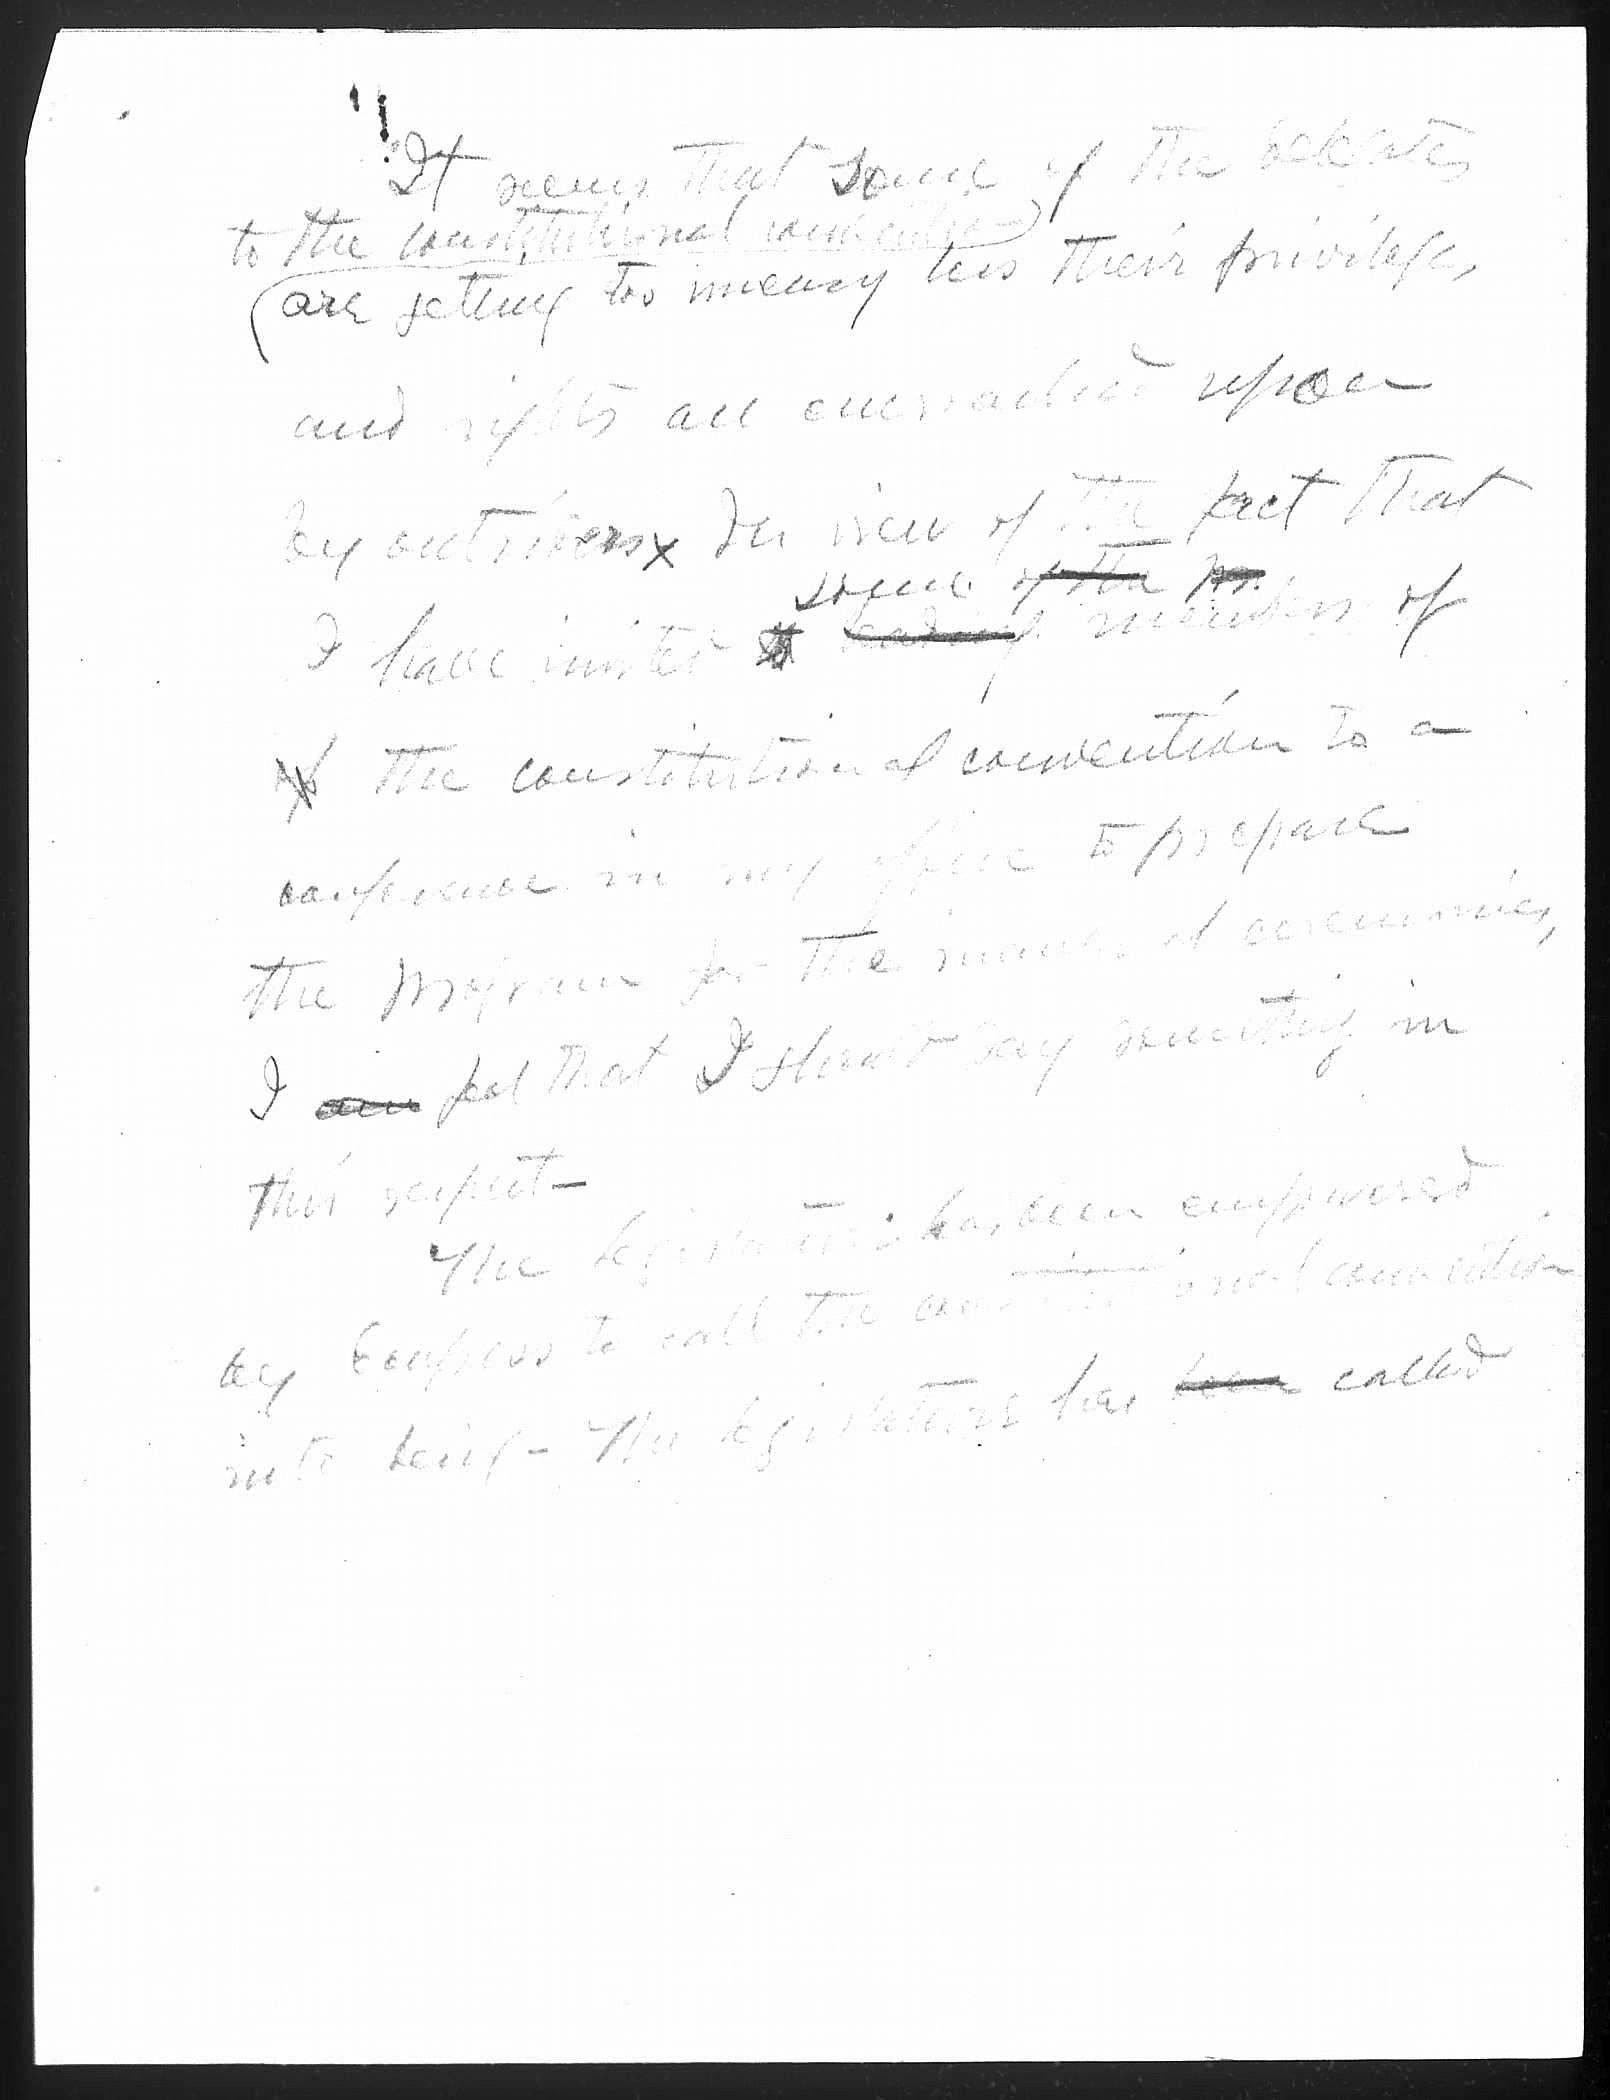 "It seems that some of the delegates
to the constitutional convention
are getting too uneasy lest their privileges
and rights are encroached upon
by outsiders x In view of the fact that
some of the
I have invited leading members of
of the constitutional convention to a
conference in my office to prepare
the program for the inaugural ceremonies,
I am feel that I should say something in
this respect-
The legislature has been empowered
by Congress to call the constitutional convention
into being- The legislature has been called